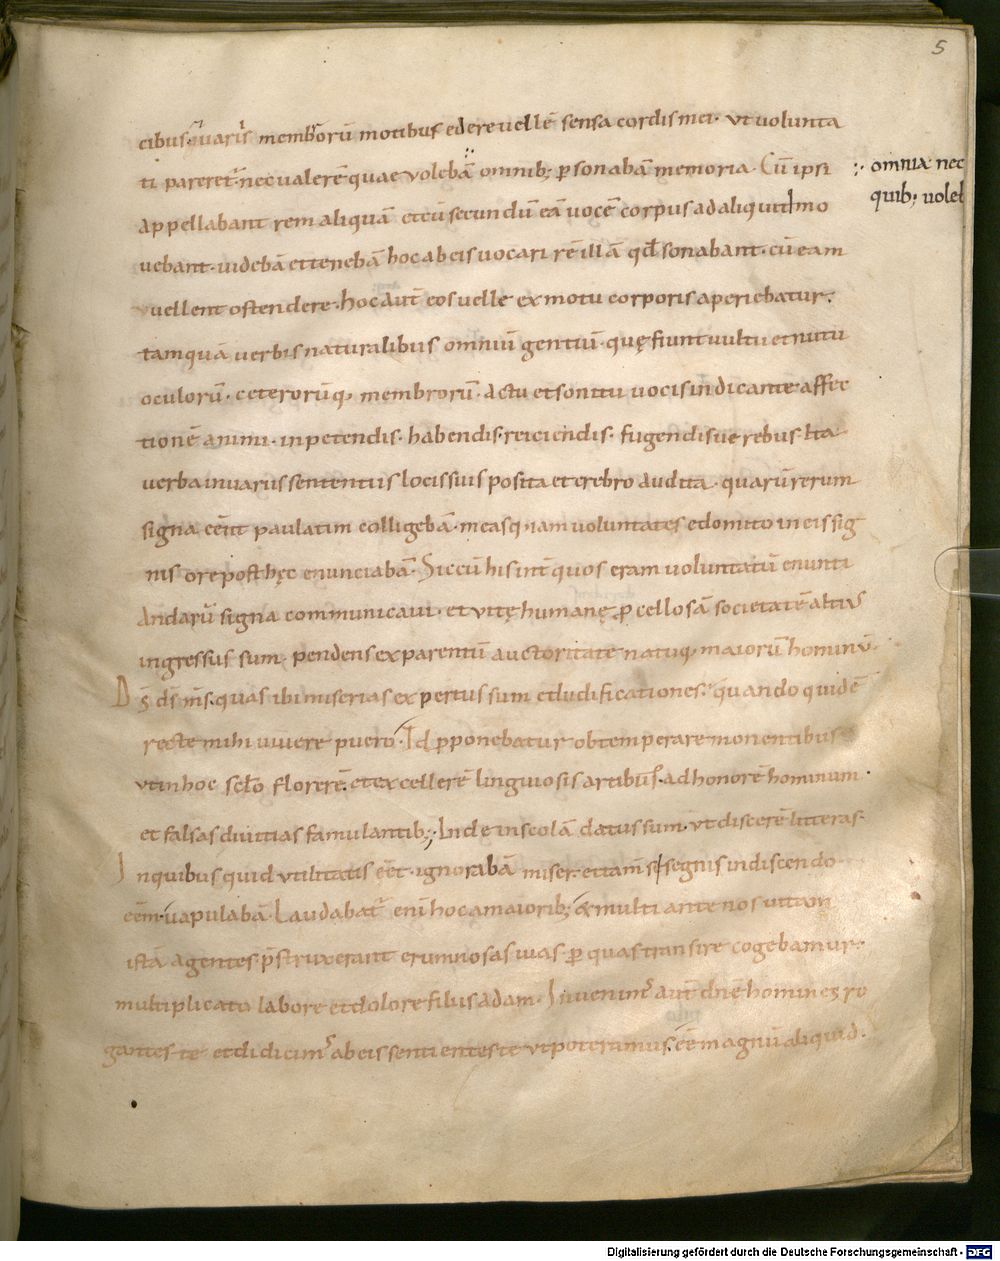 5
cibus· & uariis membrorū motibus edere uellē sensa cordis mei· ut uolunta
ti pareret̄· nec ualerē quae volebā omnib; p̱sonabā memoria· Cū ipsi
:· omnia nec
quib; voleb
appellabant rem aliquā et cū secundū eā uocē corpus ad aliquid mo
uebant· uidebā et tenebā hoc ab eis uocari rē illā qd̄ sonabant· cū eam
vellent ostendere· hoc aut̄ eos uelle ex motu corporis aperiebatur·
tamquā verbis naturalibus omniū gentiū· quę fiunt uultu et nutu
oculorū· ceterorūq; membrorū· actu et sonitu uocis indicante affec
tionē animi· in petendis· habendis· reiciendis· fugendisue rebus· Ita
uerba in uariis sententiis locis suis posita et crebro audita· quarū rerum
signa eēnt paulatim colligebā· measq; iam uoluntates edomito in eis sig
nis ore post hęc enunciabā· Sic cū his int̄ quos eram uoluntatū enunti
andarū signa communicaui· et vitę humanę p̱cellosā societatē altius
ingressus sum· pendens ex parentū auctoritate natuq; maiorū hominū·
Ds̄ ds̄ ms̄· quas ibi miserias expertus sum et ludificationes· quando quidē
recte mihi uiuere puero· Id p̱ponebatur obtemperare monentibus
vt in hoc scl̄o florerē· et excellerē linguosis artibus· ad honorē hominum·
et falsas diuitias famulantib;· Inde in scolā datus sum· vt discerē litteras·
Inquibus quid vtilitatis eēt· ignorabā miser· et tam̄ si segnis in discendo
eēm· uapulabā· Laudabat̄ eni̅ hoc a maiorib; & multi ante nos uitam
istā agentes p̄struxerant erumnosas uias· p̱ quas transire cogebamur·
multiplicato labore et dolore filiis adam· Inuenim᾽ aut̄ dn̄e homines ro
gantes te et didicim᾽ ab eis sentientes te vt poteramus· eē magnū aliquid·
Digitalisierung gefördert durch die Deutsche Forschungsgemeinschaft - DFG